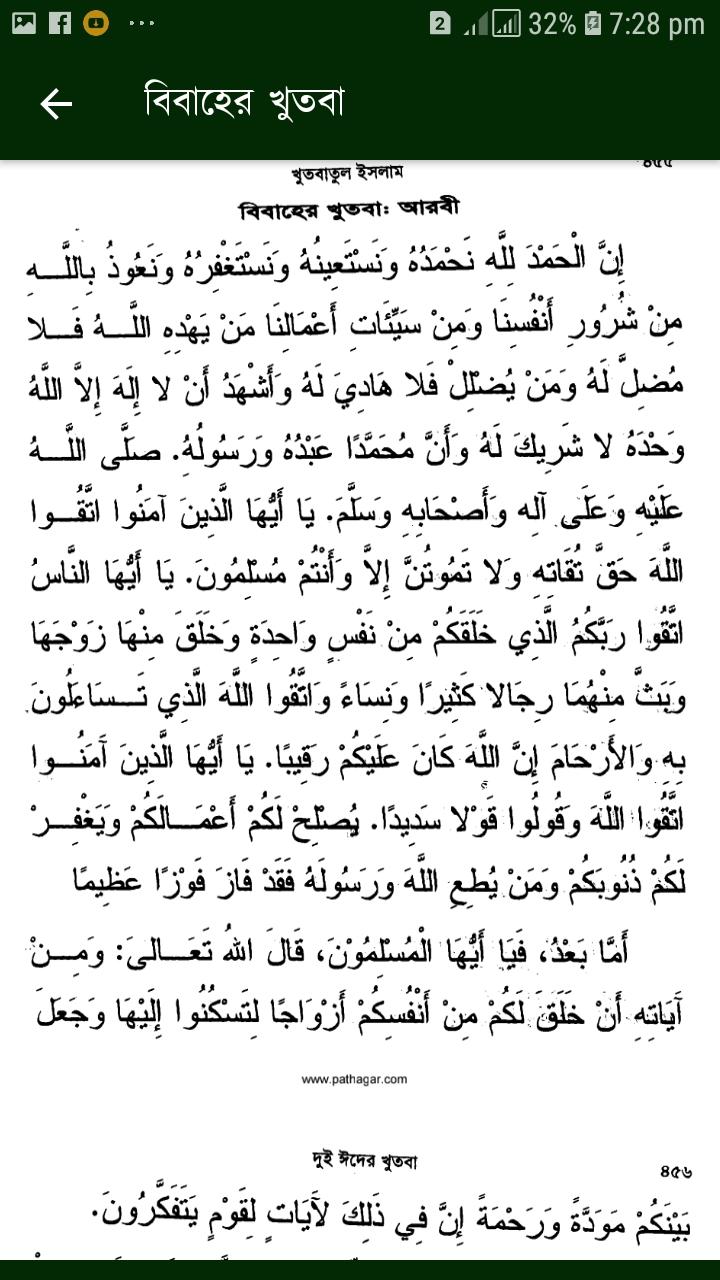 2 32% 7:28 pm
বিবাহের খুতবা
খুতবাতুল ইসলাম ৪৫৫
বিবাহের খুতবা: আরবী
إِنَّ الْحَمْدَ لِلَّهِ نَحْمَدُهُ وَنَسْتَعِينُهُ وَنَسْتَغْفِرُهُ وَنَعُوذُ بِاللَّـــهِ
مِنْ شُرُورِ أَنْفُسِنَا وَمِنْ سَيِّئَاتِ أَعْمَالِنَا مَنْ يَهْدِهِ اللَّـــهُ فَـــلا
مُضِلَّ لَهُ وَمَنْ يُضْلِلْ فَلا هَادِيَ لَهُ وَأَشْهَدُ أَنْ لا إِلَهَ إِلاَّ اللَّهُ
وَحْدَهُ لا شَرِيكَ لَهُ وَأَنَّ مُحَمَّدًا عَبْدُهُ وَرَسُولُهُ. صَلَّى اللَّـــهُ
عَلَيْهِ وَعَلَى آلِهِ وَأَصْحَابِهِ وَسَلَّمَ. يَا أَيُّهَا الَّذِينَ آمَنُوا اتَّقُـــوا
اللَّهَ حَقَّ تُقَاتِهِ وَلا تَمُوتُنَّ إِلاَّ وَأَنْتُمْ مُسْلِمُونَ. يَا أَيُّهَا النَّاسُ
اتَّقُوا رَبَّكُمُ الَّذِي خَلَقَكُمْ مِنْ نَفْسٍ وَاحِدَةٍ وَخَلَقَ مِنْهَا زَوْجَهَا
وَبَثَّ مِنْهُمَا رِجَالا كَثِيرًا وَنِسَاءً وَاتَّقُوا اللَّهَ الَّذِي تَـــسَاءَلُونَ
بِهِ وَالأَرْحَامَ إِنَّ اللَّهَ كَانَ عَلَيْكُمْ رَقِيبًا. يَا أَيُّهَا الَّذِينَ آمَنُـــوا
اتَّقُوا اللَّهَ وَقُولُوا قَوْلا سَدِيدًا. يُصْلِحْ لَكُمْ أَعْمَـــالَكُمْ وَيَغْفِـــرْ
لَكُمْ ذُنُوبَكُمْ وَمَنْ يُطِعِ اللَّهَ وَرَسُولَهُ فَقَدْ فَازَ فَوْزًا عَظِيمًا
أَمَّا بَعْدُ، فَيَا أَيُّهَا الْمُسْلِمُوْنَ، قَالَ اللهُ تَعَـــالىَ: وَمِـــنْ
آيَاتِهِ أَنْ خَلَقَ لَكُمْ مِنْ أَنْفُسِكُمْ أَزْوَاجًا لِتَسْكُنُوا إِلَيْهَا وَجَعَلَ
www.pathagar.com
দুই ঈদের খুতবা ৪৫৬
بَيْنَكُمْ مَوَدَّةً وَرَحْمَةً إِنَّ فِي ذَلِكَ لَآيَاتٍ لِقَوْمٍ يَتَفَكَّرُونَ.